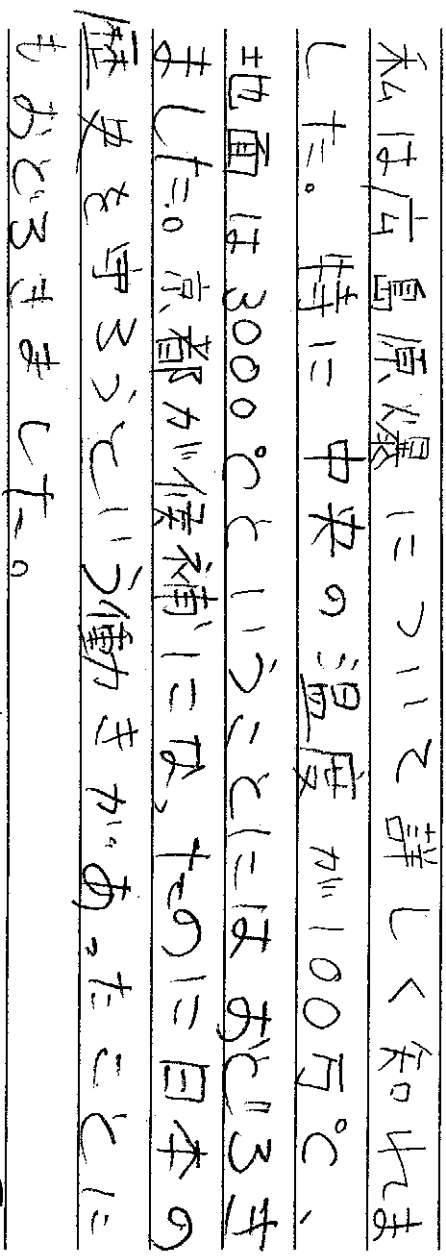 私は広島原爆について詳しく知れま
した。特に中央の温度が100万℃、
地面は3000℃ということにはおどろき
ました。京都が候補になったのに日本の
歴史を守ろうという働きがあったことに
もおどろきました。